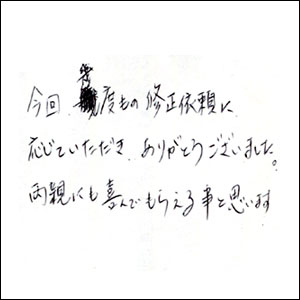 今回、度もの修正依頼に
応じていただき、ありがとうございました。
両親にも喜んでもらえる事と思います